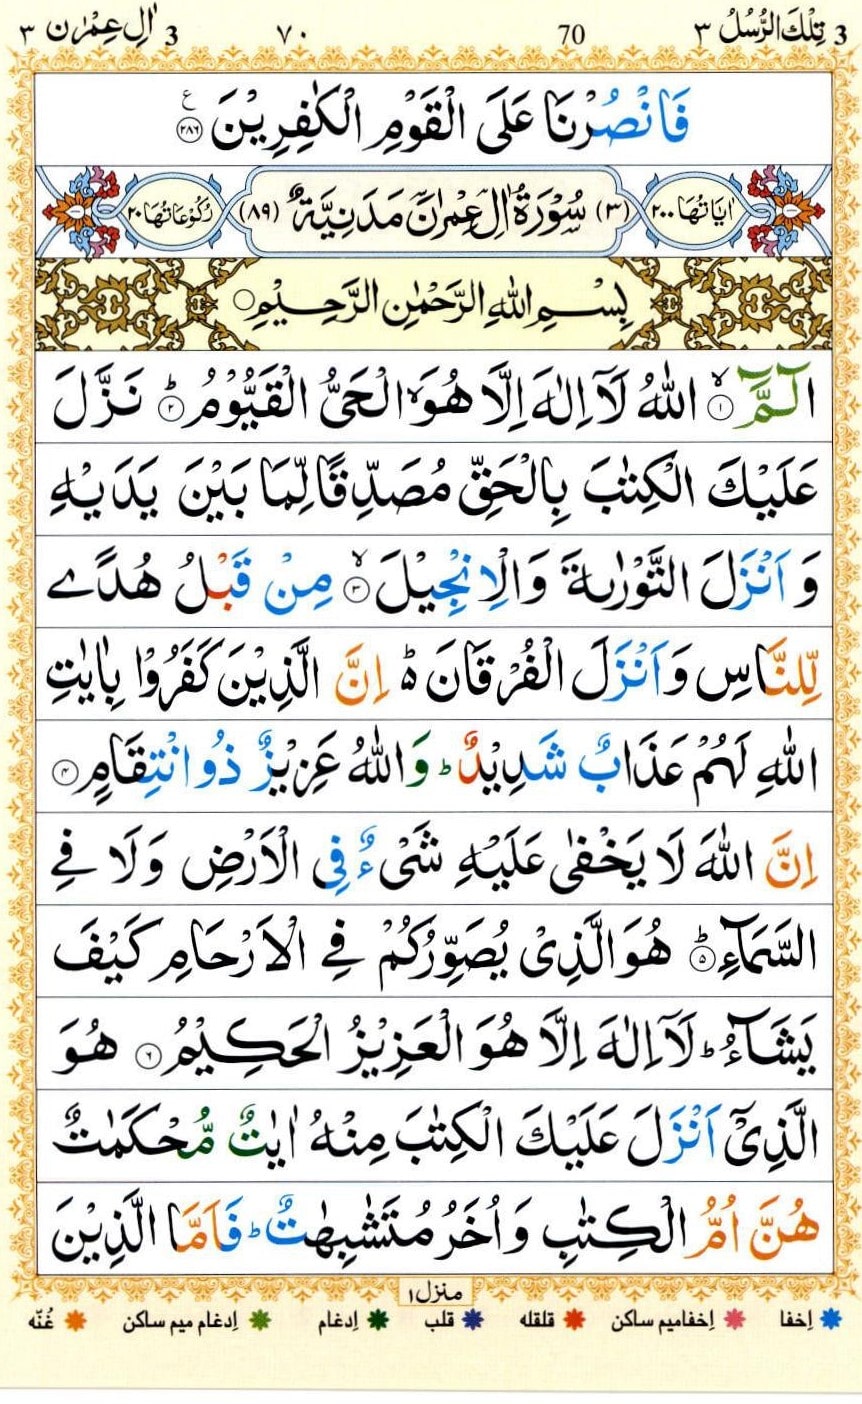 3 تِلْكَ الرُّسُلُ ٣ 70 ٧٠ 3 اٰلِ عِمْرٰن ٣
فَانْصُرْنَا عَلَى الْقَوْمِ الْكٰفِرِيْنَ ۝٢٨٦ ع
اٰيَاتُهَا ٢٠٠ (٣) سُوْرَةُ اٰلِ عِمْرٰنَ مَدَنِيَّةٌ (٨٩) رُكُوْعَاتُهَا ٢٠
بِسْمِ اللّٰهِ الرَّحْمٰنِ الرَّحِيْمِ ۝
الٓمَّٓ ۝١ۙ اللّٰهُ لَاۤ اِلٰهَ اِلَّا هُوَ ۙ الْحَىُّ الْقَيُّوْمُ ؕ۝٢ نَزَّلَ
عَلَيْكَ الْكِتٰبَ بِالْحَقِّ مُصَدِّقًا لِّمَا بَيْنَ يَدَيْهِ
وَ اَنْزَلَ التَّوْرٰىةَ وَالْاِنْجِيْلَ ۝٣ۙ مِنْ قَبْلُ هُدًى
لِّلنَّاسِ وَ اَنْزَلَ الْفُرْقَانَ ؕ۬ اِنَّ الَّذِيْنَ كَفَرُوْا بِاٰيٰتِ
اللّٰهِ لَهُمْ عَذَابٌ شَدِيْدٌ ؕ وَاللّٰهُ عَزِيْزٌ ذُو انْتِقَامٍ ۝٤
اِنَّ اللّٰهَ لَا يَخْفٰى عَلَيْهِ شَىْءٌ فِى الْاَرْضِ وَلَا فِى
السَّمَآءِ ؕ۝٥ هُوَ الَّذِىْ يُصَوِّرُكُمْ فِى الْاَرْحَامِ كَيْفَ
يَشَآءُ ؕ لَاۤ اِلٰهَ اِلَّا هُوَ الْعَزِيْزُ الْحَكِيْمُ ۝٦ هُوَ
الَّذِىْۤ اَنْزَلَ عَلَيْكَ الْكِتٰبَ مِنْهُ اٰيٰتٌ مُّحْكَمٰتٌ
هُنَّ اُمُّ الْكِتٰبِ وَ اُخَرُ مُتَشٰبِهٰتٌ ؕ فَاَمَّا الَّذِيْنَ
منزل ١
اِخفا اِخفامیم ساکن قلقله قلب اِدغام اِدغام میم ساکن غُنّه